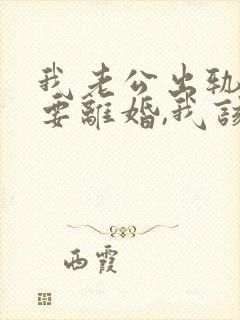 我老公出轨
要離婚,我該
西霞